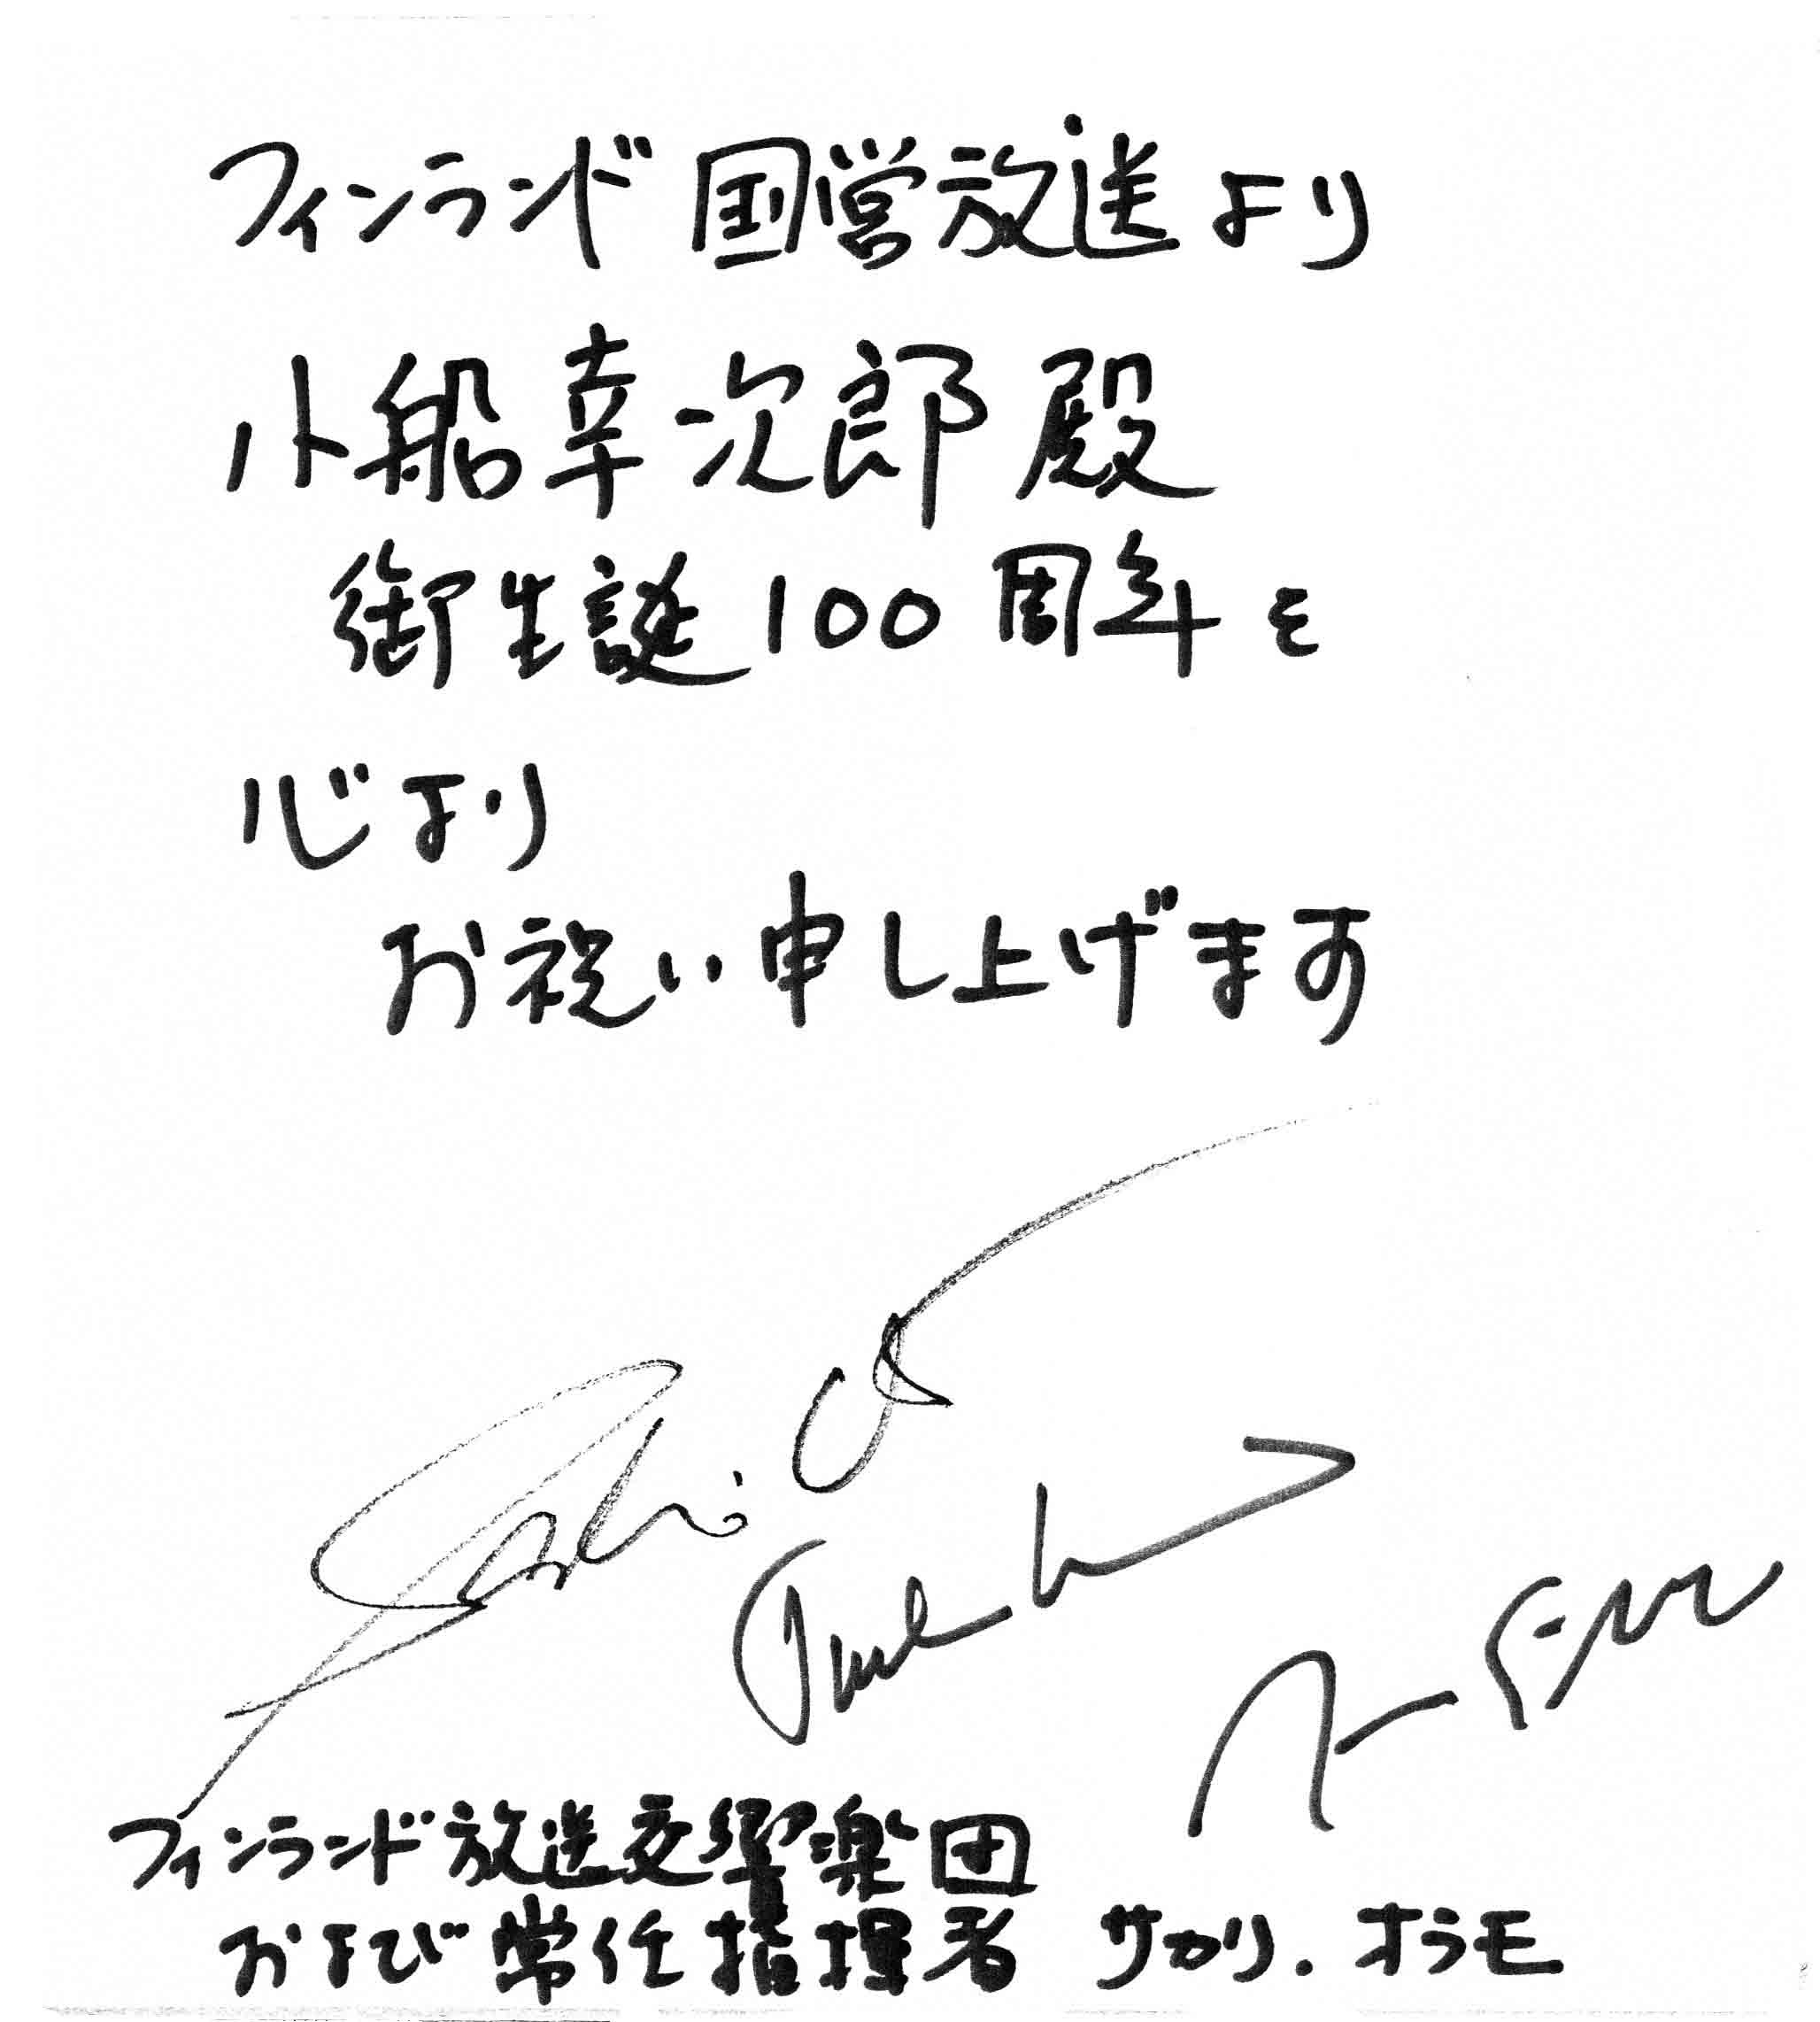 フィンランド国営放送より
小船幸次郎殿
御生誕100周年を
心より
お祝い申し上げます
フィンランド放送交響楽団
および常任指揮者 サカリ.オラモ